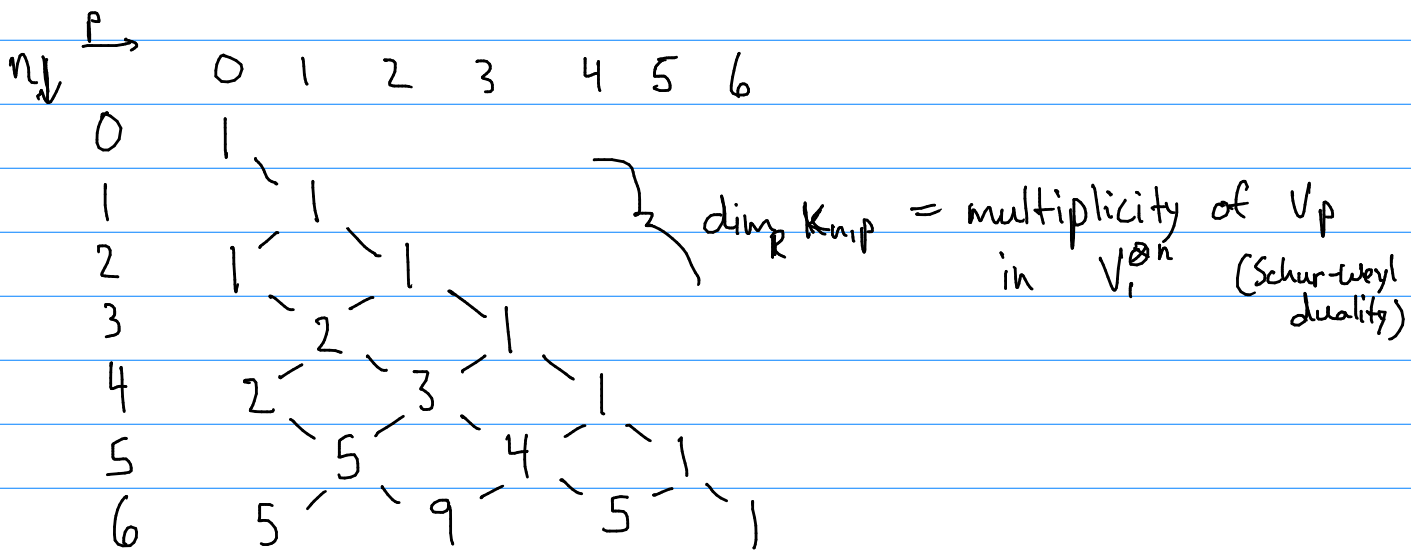 p →
n ↓ 0 1 2 3 4 5 6
0 1
1 1
2 1 1
3 2 1
4 2 3 1
5 5 4 1
6 5 9 5 1
dim_R K_{n,p} = multiplicity of V_p
in V_1^{⊗n} (Schur-Weyl
duality)